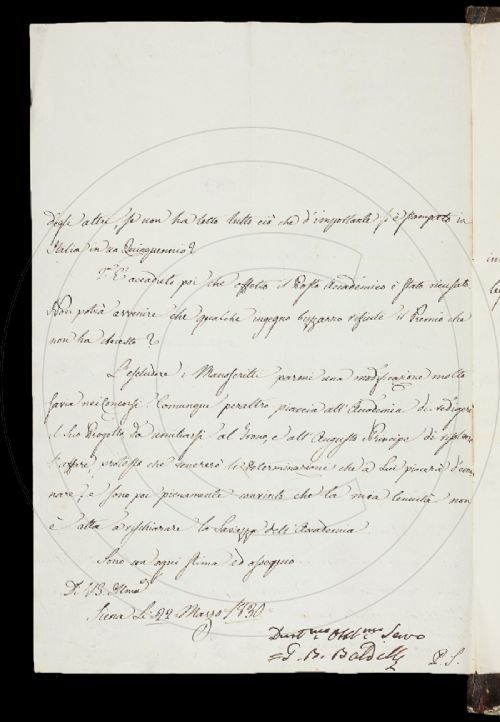 degli altri, se non ha letto tutto ciò che d'importante si è stampato in
Italia in un Quinquennio?
E' accaduto poi che offerto il Posto Accademico è stato ricusato
Non potrà avvenire che qualche ingegno bizzarro rifiuti il Premio che
non ha chiesto?
L'escludere i Manoscritti parmi una modificazione molto
savia nei Concorsi. Comunque peraltro piaccia all'Accademia di redigere
il suo Progetto da umiliarsi al Trono, e all'Augusto Principe di risolvere
l'affare, protesto che venererò le determinazioni che a Lui piacerà d'ema
nare, e sono poi pienamente convinto che la mia tenuità non
è atta a rischiarare la Saviezza dell'Accademia.
Sono con ogni stima ed ossequio
Di VS.
Siena Li 22 Marzo 1830
Devmo Obblmo Servo
G. B. Baldelli
P. S.